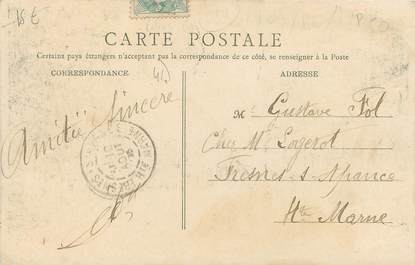 15 €
CARTE POSTALE
Certains pays étrangers n'acceptant pas la correspondance de ce côté, se renseigner à la Poste
CORRESPONDANCE
ADRESSE
Amitié sincère
M. Gustave Fol
Chez Mr Logerot
Fresnes-s-Apance
Hte Marne